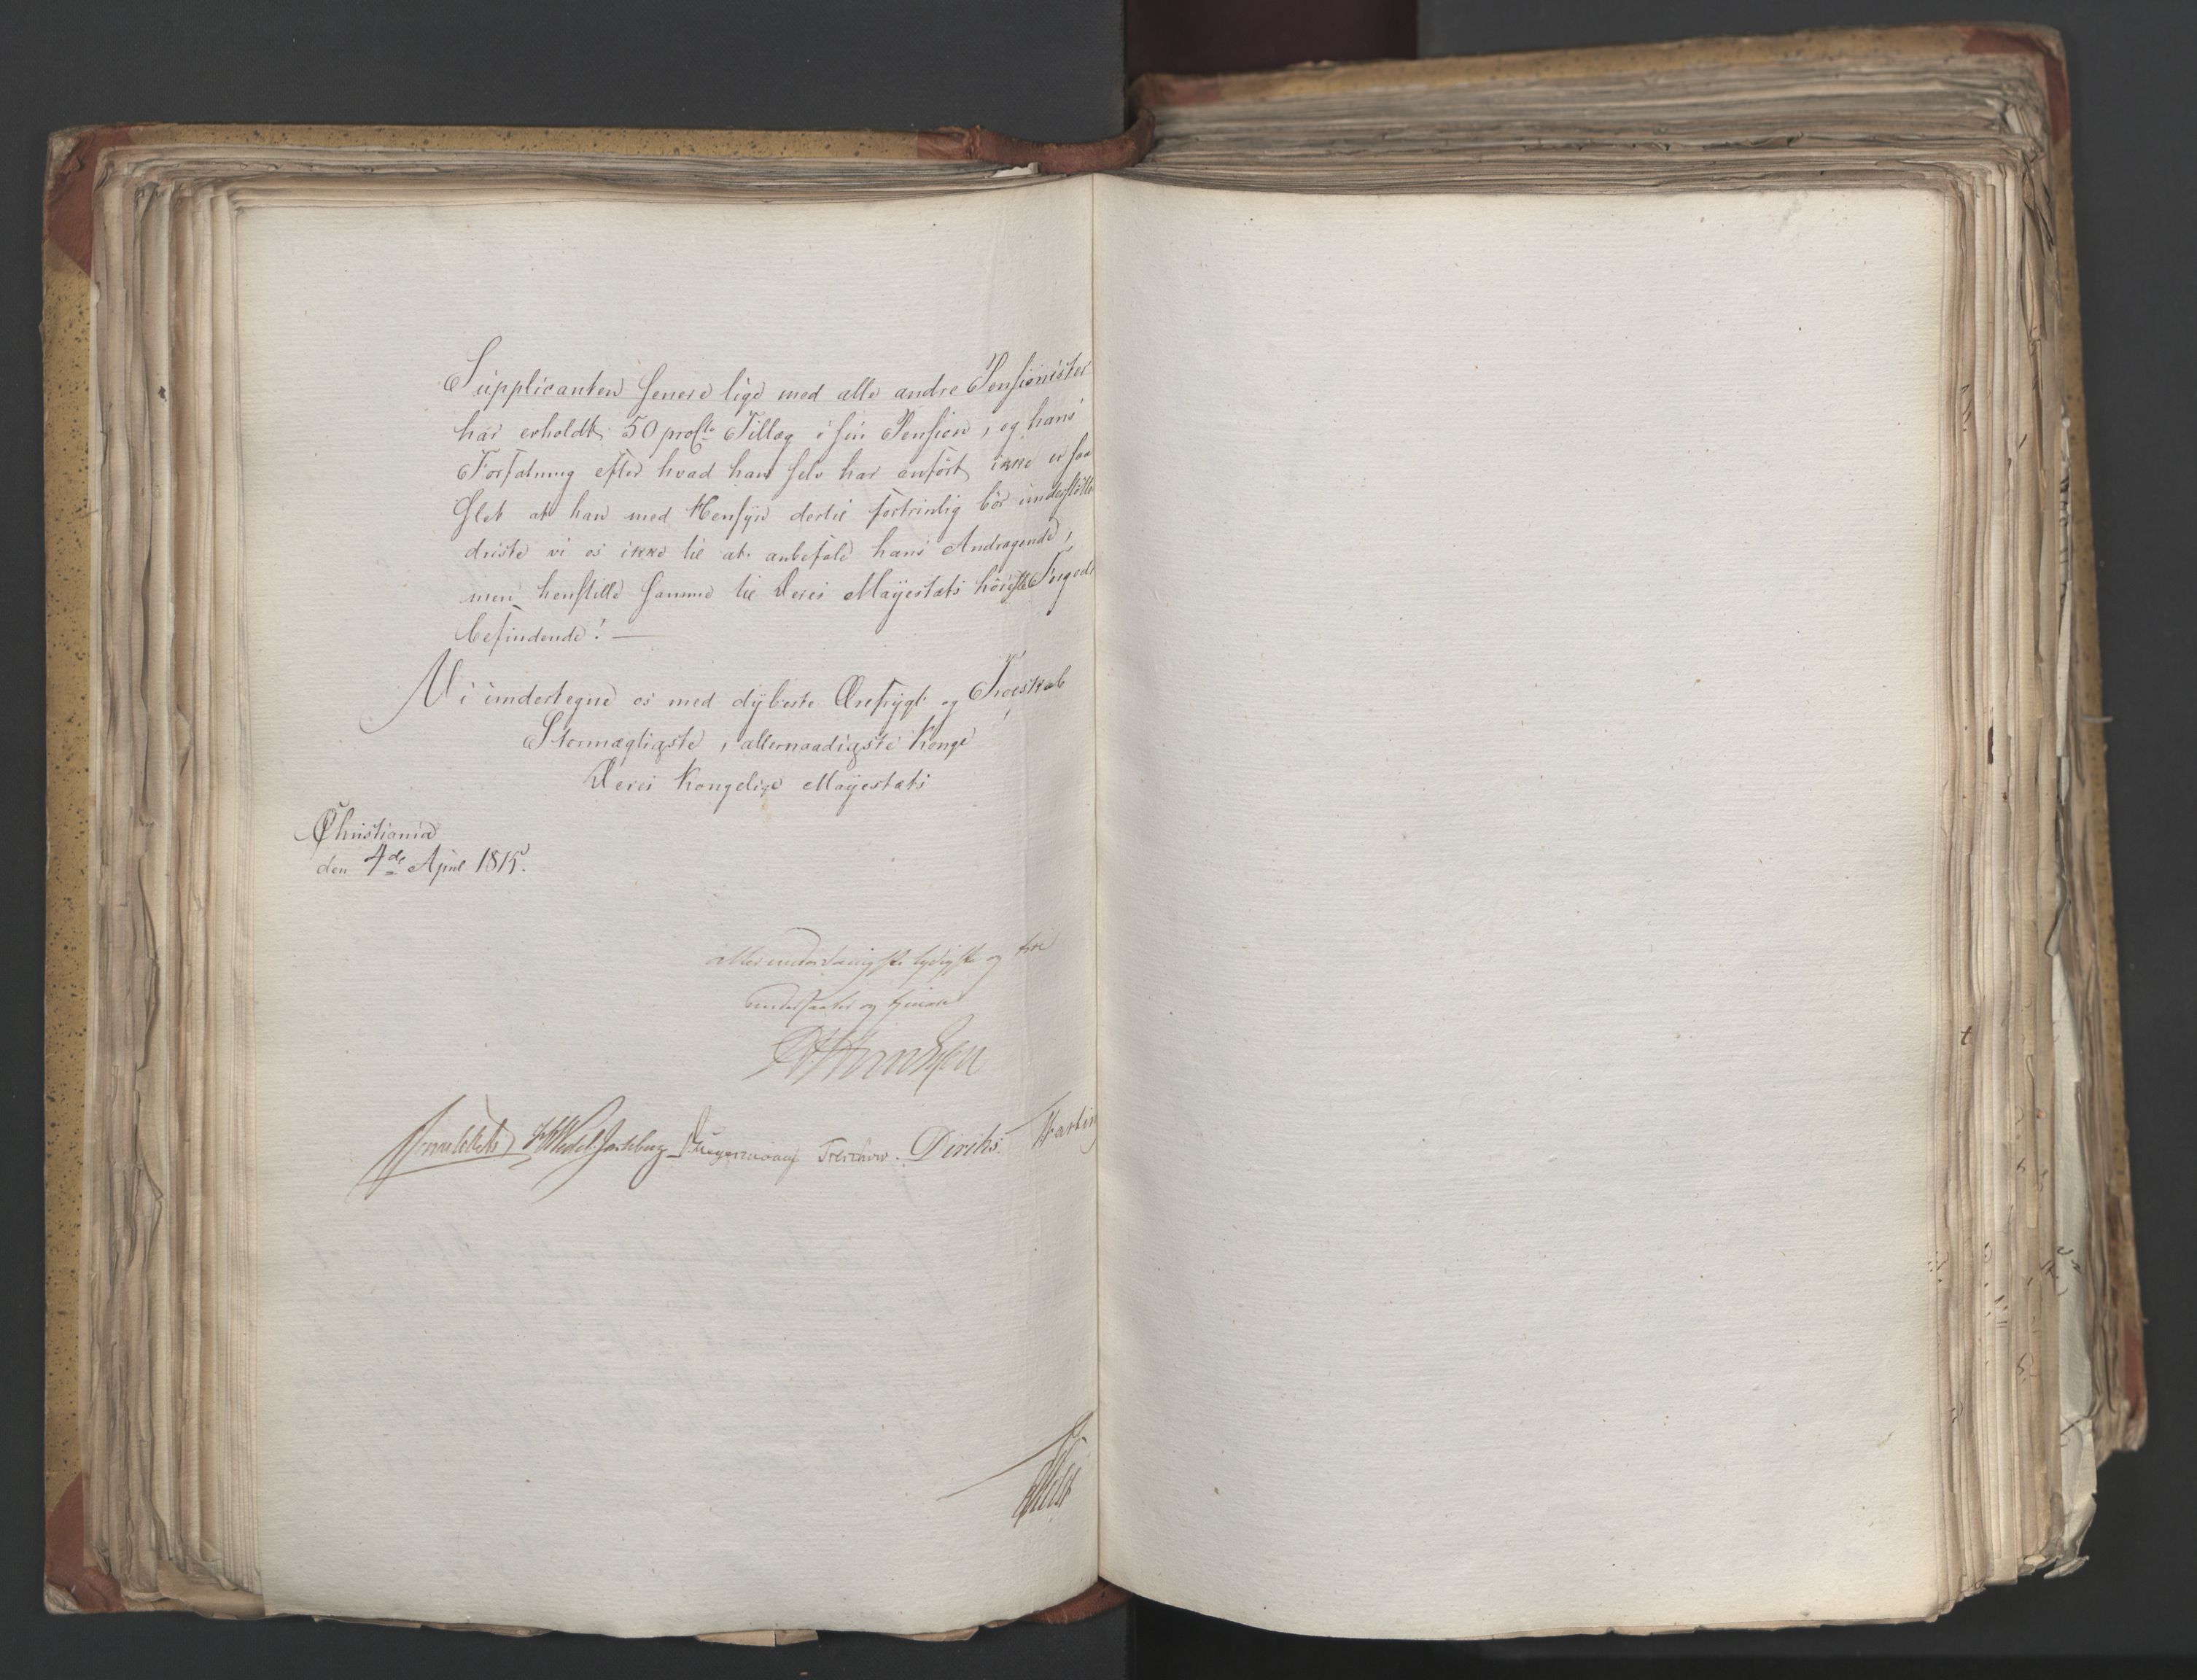 Supplicanten senere lige med alle andre Pensionister
har erholdt 50 proCto Tillæg i sin Pension, og hans
Forfatning efter hvad han selv har anført ikke er saa
slet at han med Hensyn dertil fortrinlig bör understötte
driste vi os ikke til at anbefale hans Andragende,
men henstille samme til Deres Mayestæts höieste Forgodt
befindende! —
Vi undertegne os med dybeste Ærefrygt og Troeskab
Stormægtigste, allernaadigste Konge
Deres Kongelige Mayestæts
Christiania
den 4de April 1815.
allerunderdanigste lydigste og troe
undersaatter og tjenere
Wedel-Jarlsberg Treschow. Diriks.